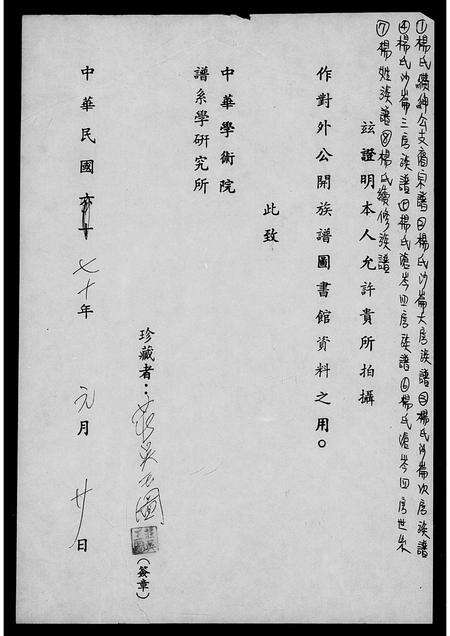 ①楊氏纘紳公支裔宗譜②楊氏沙崙大房族譜③楊氏沙崙次房族譜
④楊氏沙崙三房族譜⑤楊氏滄岑四房族譜⑥楊氏滄岑四房世系
⑦楊姓族譜⑧楊氏續修族譜
玆證明本人允許貴所拍攝
作對外公開族譜圖書館資料之用。
此致
中華學術院
譜系學研究所
珍藏者：
(簽章)
中華民國 七十年 元月 廿日